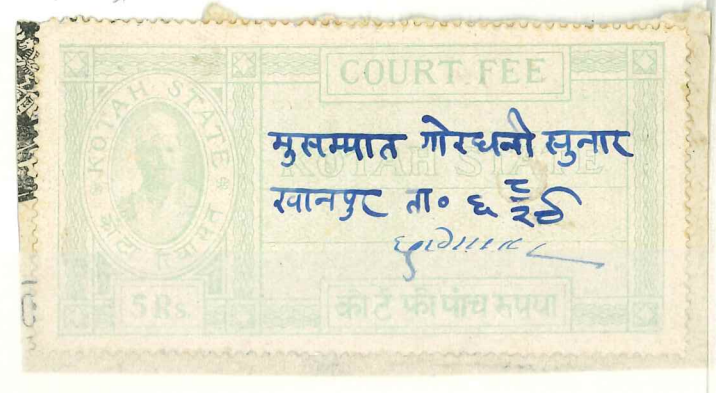 COURT FEE
KOTAH STATE
कोटा रियासत
KOTAH STATE
मुसम्मात गोरधनी सुनार
खानपुर ता० ६
5 Rs.
कोर्ट फी पांच रुपया